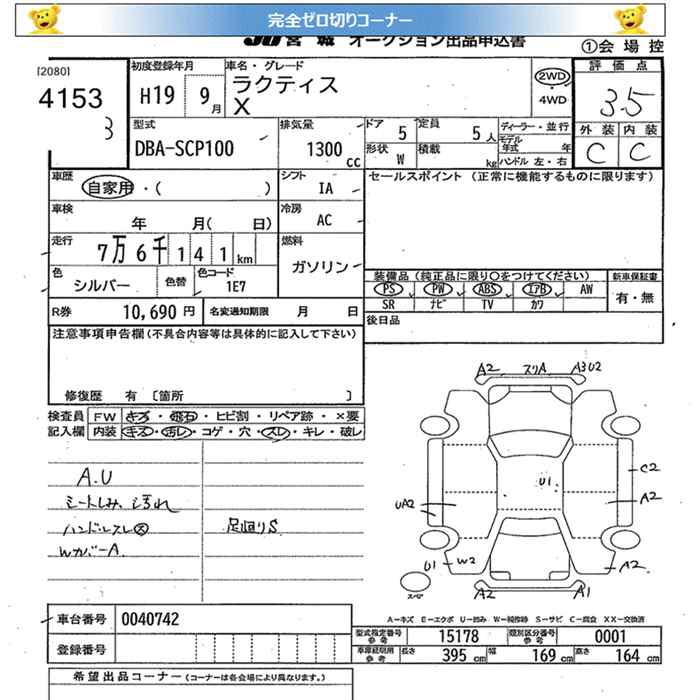 完全ゼロ切りコーナー
JU 宮城 オークション出品申込書
①会場控
[2080]
4153
3
初度登録年月
H19 9月
車名・グレード
ラクティス
X
2WD
・
4WD
評価点
3.5
外装 内装
C C
型式
DBA-SCP100
排気量
1300cc
ドア 5
定員 5人
ディーラー・並行
モデル年式 年
形状 W
積載 kg
ハンドル 左・右
車歴
自家用・( )
シフト
IA
セールスポイント (正常に機能するものに限ります)
車検
年 月( 日)
冷房
AC
走行
7万6千141km
燃料
ガソリン
色
シルバー
色替
色コード
1E7
装備品(純正品に限り〇をつけてください)
新車保証書
PS PW ABS エアB AW
SR ナビ TV カワ
有・無
R券 10,690 円
名変通知期限 月 日
後日品
注意事項申告欄(不具合内容等は具体的に記入して下さい)
修復歴 有 〔箇所 〕
検査員記入欄
FW キズ・飛石・ヒビ割・リペア跡・×要
内装 キズ・汚レ・コゲ・穴・スレ・キレ・破レ
A.U
シートしみ、汚れ
ハンドルスレ㋜
Wカバー A
足回りS
A2 スリA A3U2
U1
C2
A2
UA2
U1 W2
A2
スペア
A2 A1
A=キズ E=エクボ U=凹み W=補修跡 S=サビ C=腐食 XX=交換済
車台番号 0040742
登録番号
型式指定番号参考 15178
類別区分番号参考 0001
車庫証明用参考 長さ 395cm 幅 169cm 高さ 164cm
希望出品コーナー(コーナーは各会場により異なります。)